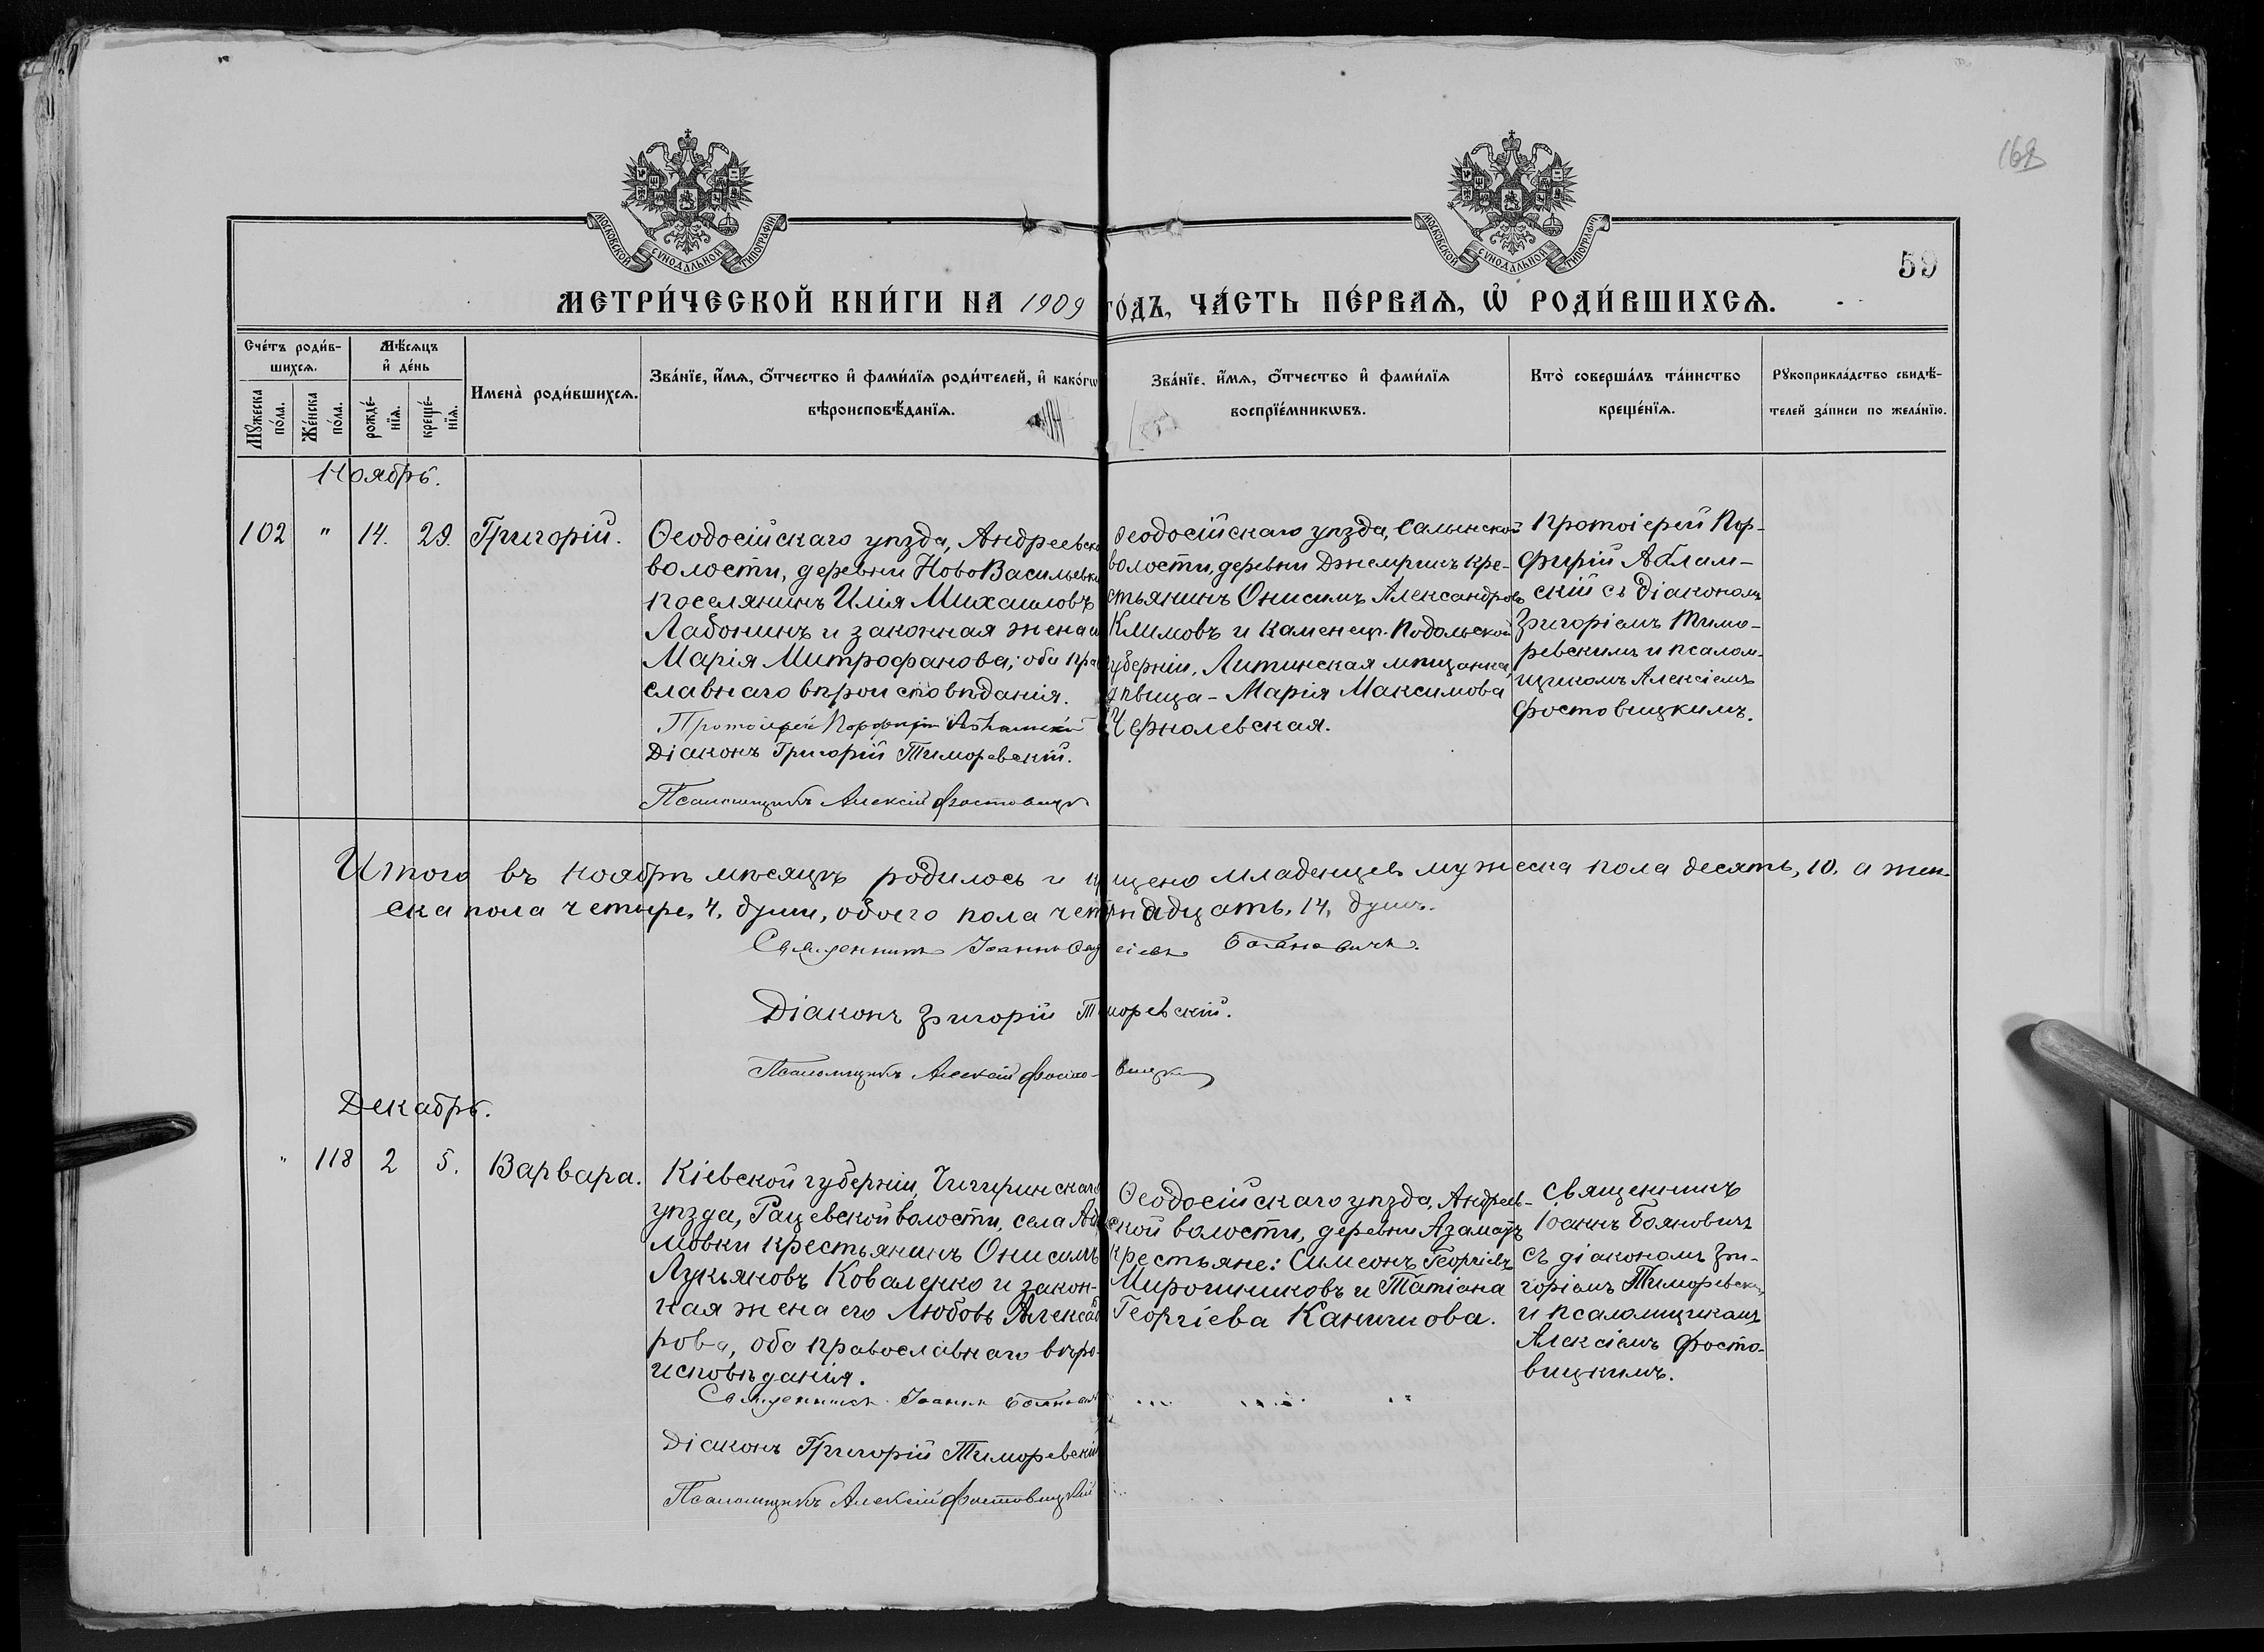 168
59
МОСКОВСКОЙ СѴНОДАЛЬНОЙ ТИПОГРАФІИ
МОСКОВСКОЙ СѴНОДАЛЬНОЙ ТИПОГРАФІИ
МЕТРИ́ЧЕСКОЙ КНИ́ГИ НА 1909 ГО́ДЪ, ЧА́СТЬ ПЕ́РВАѦ, Ѡ҆ РОДИ́ВШИХСѦ.
Сче́тъ роди́в-
шихсѧ.
Мꙋжеска по́ла.
Же́нска по́ла.
Мѣ́сѧцъ
и҆ де́нь
рожде́-
нїѧ.
креще́-
нїѧ.
Имена̀ роди́вшихсѧ.
Зва́нїе, и҆́мѧ, ѻ҆́тчество и҆ фами́лїѧ роди́телей, и҆ како́гѡ
вѣроисповѣ́данїѧ.
Зва́нїе, и҆́мѧ, ѻ҆́тчество и҆ фами́лїѧ
воспрїе́мникѡвъ.
Кто̀ соверша́лъ та́инство
креще́нїѧ.
Рꙋкоприкла́дство свидѣ́-
телей за́писи по жела́нїю.
Ноябрь.
102 " 14. 29. Григорій.
Ѳеодосійскаго уѣзда, Андреевско
волости, деревни НовоВасильевки
поселянинъ Илія Михаиловъ
Лабонинъ и законная жена и
Марія Митрофанова; оба пра
славнаго вѣроисповѣданія.
Протоіерей Порфирій Абламскій
Діаконъ Григорій Тиморевскій.
Псаломщикъ Алексій Фостовицк
Ѳеодосійскаго уѣзда, Салынской
волости, деревни Джемричъ кре-
стьянинъ Онисимъ Александровъ
Климовъ и Каменец-Подольской
губерніи, Литинская мѣщанка,
дѣвица - Марія Максимова
Чернолевская.
Протоіерей Пор-
фирій Аблам-
скій съ Діакономъ
Григоріемъ Тимо-
ревскимъ и псалом-
щикомъ Алексіемъ
Фостовицкимъ.
Итого въ Ноябрѣ мѣсяцѣ родилось и щено младенцев мужеска пола десять, 10, а жен-
ска пола четыре, 4, души, обоего пола четырнадцать, 14, душъ.
Священникъ Іоаннъ сіевъ Бояновичъ.
Діаконъ Григорій Тиморевскій.
Псаломщикъ Алексій Фосто-вицкі
Декабрь.
" 118 2 5. Варвара.
Кіевской губерніи, Чигиринскаго
уѣзда, Рацевской волости, села Ада
мовки крестьянинъ Онисимъ
Лукьяновъ Коваленко и закон-
ная жена его Любовь Александ
рова, оба православнаго вѣро-
исповѣданія.
Священникъ Іоаннъ Боянович
Діаконъ Григорій Тиморевскій
Псаломщикъ Алексій Фостовицкій
Ѳеодосійскаго уѣзда, Андреев-
ской волости, деревни Азаматъ
крестьяне: Симеонъ Георгіевъ
Мирошниковъ и Татіана
Георгіева Каничова.
Священникъ
Іоаннъ Бояновичъ
съ діакономъ Гри-
горіемъ Тиморевским
и псаломщикомъ
Алексіемъ Фосто-
вицкимъ.